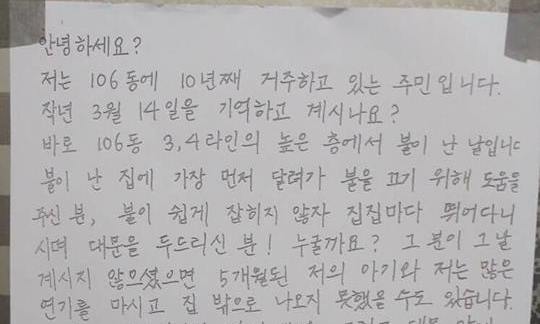 안녕하세요?
저는 106동에 10년째 거주하고 있는 주민입니다.
작년 3월 14일을 기억하고 계시나요?
바로 106동 3,4라인의 높은 층에서 불이 난 날입니다
불이 난 집에 가장 먼저 달려가 불을 끄기 위해 도움을
주신 분, 불이 쉽게 잡히지 않자 집집마다 뛰어다니
시며 대문을 두드리신 분! 누굴까요? 그 분이 그날
계시지 않으셨으면 5개월된 저의 아기와 저는 많은
연기를 마시고 집 밖으로 나오지 못했을 수도 있습니다.